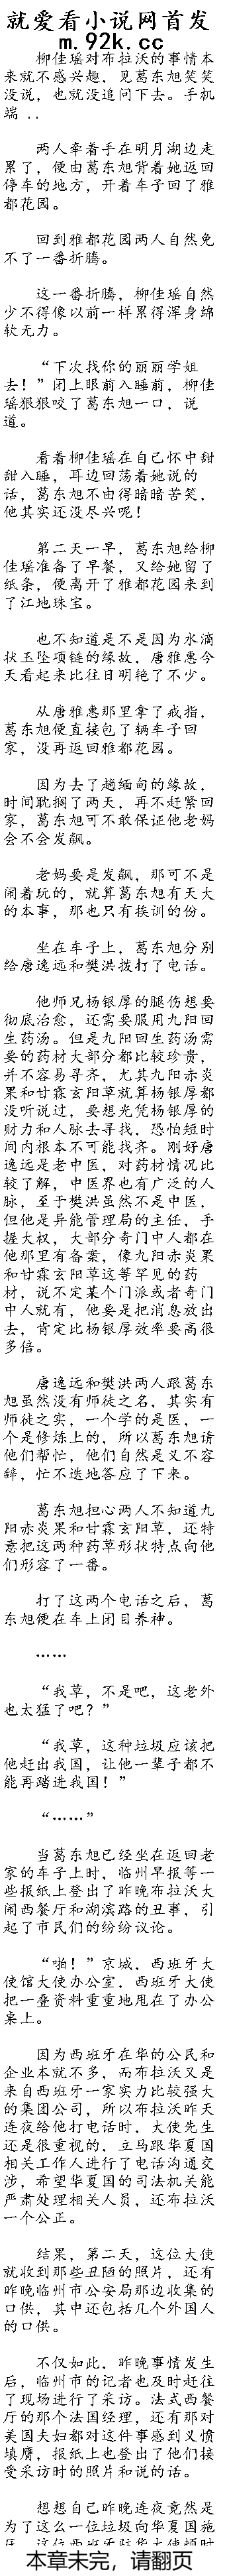 就爱看小说网首发
m.92k.cc
柳佳瑶对布拉沃的事情本
来就不感兴趣，见葛东旭笑笑
没说，也就没追问下去。手机
端 ..
两人牵着手在明月湖边走
累了，便由葛东旭背着她返回
停车的地方，开着车子回了雅
都花园。
回到雅都花园两人自然免
不了一番折腾。
这一番折腾，柳佳瑶自然
少不得像以前一样累得浑身绵
软无力。
“下次找你的丽丽学姐
去！”闭上眼前入睡前，柳佳
瑶狠狠咬了葛东旭一口，说
道。
看着柳佳瑶在自己怀中甜
甜入睡，耳边回荡着她说的
话，葛东旭不由得暗暗苦笑，
他其实还没尽兴呢！
第二天一早，葛东旭给柳
佳瑶准备了早餐，又给她留了
纸条，便离开了雅都花园来到
了江地珠宝。
也不知道是不是因为水滴
状玉坠项链的缘故，唐雅惠今
天看起来比往日明艳了不少。
从唐雅惠那里拿了戒指，
葛东旭便直接包了辆车子回
家，没再返回雅都花园。
因为去了趟缅甸的缘故，
时间耽搁了两天，再不赶紧回
家，葛东旭可不敢保证他老妈
会不会发飙。
老妈要是发飙，那可不是
闹着玩的，就算葛东旭有天大
的本事，那也只有挨训的份。
坐在车子上，葛东旭分别
给唐逸远和樊洪拨打了电话。
他师兄杨银厚的腿伤想要
彻底治愈，还需要服用九阳回
生药汤。但是九阳回生药汤需
要的药材大部分都比较珍贵，
并不容易寻齐，尤其九阳赤炎
果和甘霖玄阳草就算杨银厚都
没听说过，要想光凭杨银厚的
财力和人脉去寻找，恐怕短时
间内根本不可能找齐。刚好唐
逸远是老中医，对药材情况比
较了解，中医界也有广泛的人
脉，至于樊洪虽然不是中医，
但他是异能管理局的主任，手
握大权，大部分奇门中人都在
他那里有备案，像九阳赤炎果
和甘霖玄阳草这等罕见的药
材，说不定某个门派或者奇门
中人就有，他要是把消息放出
去，肯定比杨银厚效率要高很
多倍。
唐逸远和樊洪两人跟葛东
旭虽然没有师徒之名，其实有
师徒之实，一个学的是医，一
个是修炼上的，所以葛东旭请
他们帮忙，他们自然是义不容
辞，忙不迭地答应了下来。
葛东旭担心两人不知道九
阳赤炎果和甘霖玄阳草，还特
意把这两种药草形状特点向他
们形容了一番。
打了这两个电话之后，葛
东旭便在车上闭目养神。
……
“我草，不是吧，这老外
也太猛了吧？”
“我草，这种垃圾应该把
他赶出我国，让他一辈子都不
能再踏进我国！”
“……”
当葛东旭已经坐在返回老
家的车子上时，临州早报等一
些报纸上登出了昨晚布拉沃大
闹西餐厅和湖滨路的丑事，引
起了市民们的纷纷议论。
“啪！”京城，西班牙大
使馆大使办公室，西班牙大使
把一叠资料重重地甩在了办公
桌上。
因为西班牙在华的公民和
企业本就不多，而布拉沃又是
来自西班牙一家实力比较强大
的集团公司，所以布拉沃昨天
连夜给他打电话时，大使先生
还是很重视的，立马跟华夏国
相关工作人进行了电话沟通交
涉，希望华夏国的司法机关能
严肃处理相关人员，还布拉沃
一个公正。
结果，第二天，这位大使
就收到那些丑陋的照片，还有
昨晚临州市公安局那边收集的
口供，其中还包括几个外国人
的口供。
不仅如此，昨晚事情发生
后，临州市的记者也及时赶往
了现场进行了采访。法式西餐
厅的那个法国经理，还有那对
美国夫妇都对这件事感到义愤
填膺，报纸上也登出了他们接
受采访时的照片和说的话。
想想自己昨晚连夜竟然是
为了这么一位垃圾向华夏国施
压，这位西班牙驻华大使顿时
本章未完，请翻页